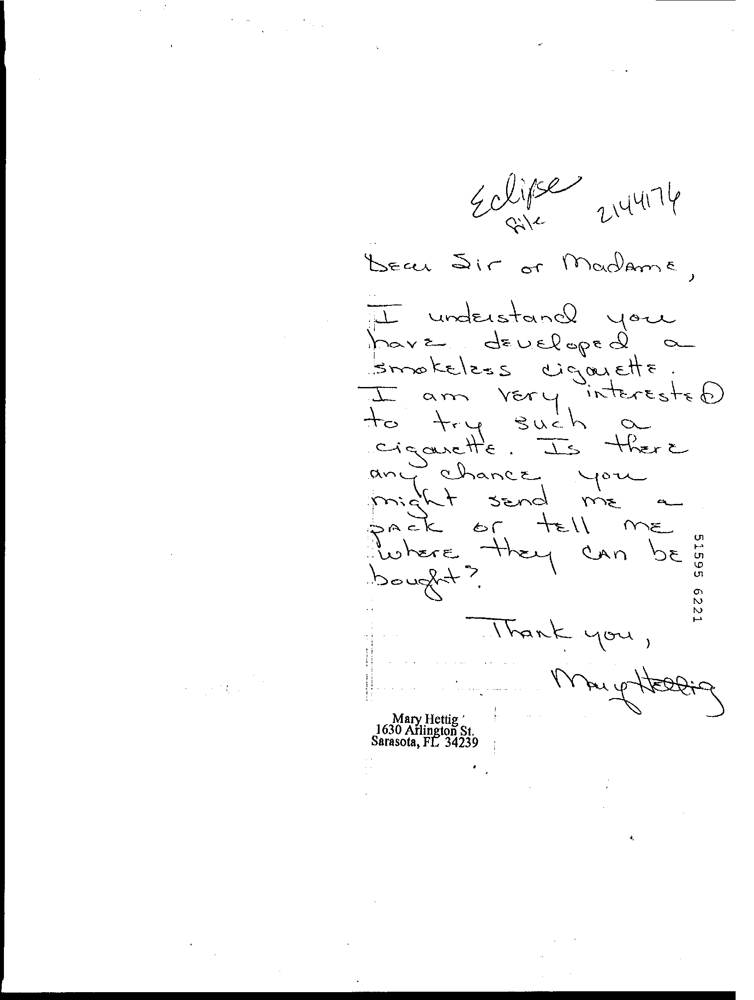 Eclipse
file
2144176
Dear Sir or Madame,
I understand you
have developed a
smokeless cigarette.
I am very interested
to try such a
cigarette. Is there
any chance you
might send me a
pack or tell me
where they can be
bought?
Thank you,
Mary Hettig
Mary Hettig
1630 Arlington St.
Sarasota, FL 34239
51595 6221